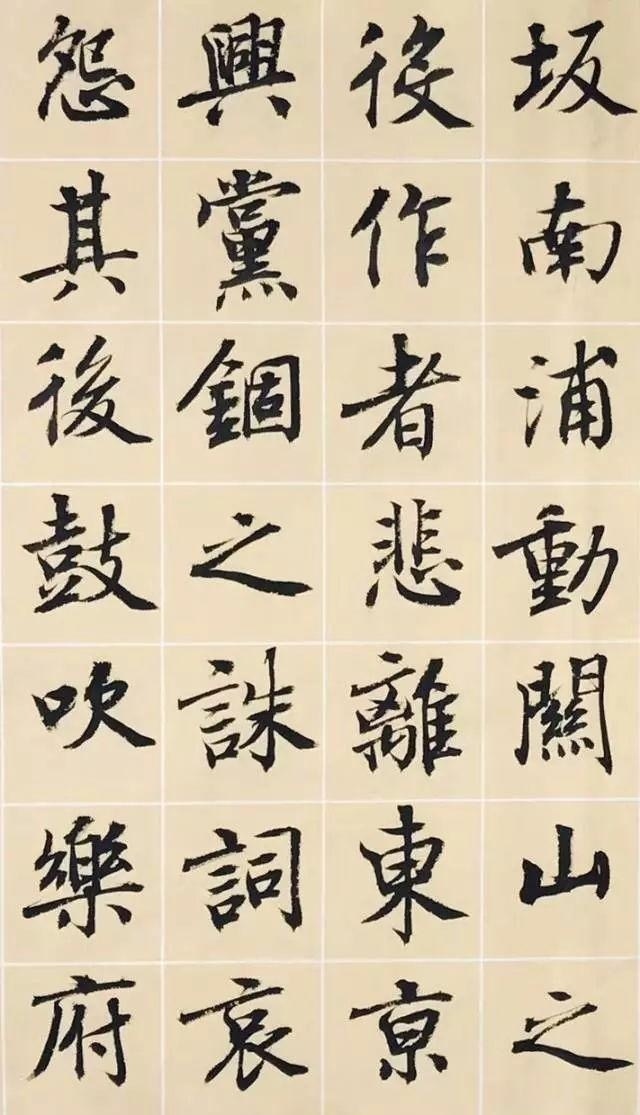 坂南浦動關山之
後作者悲離東亰
興黨錮之誅詞哀
怨其後鼓吹樂府